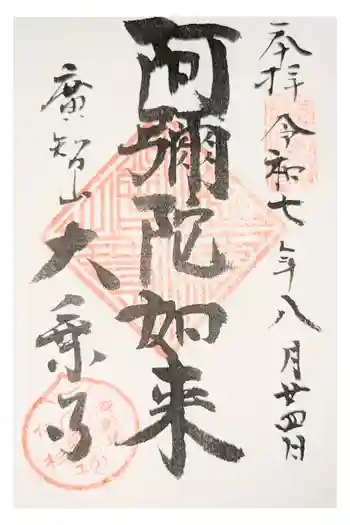 奉拝 令和七年八月廿四日
阿彌陀如来
廣智山 大乗寺